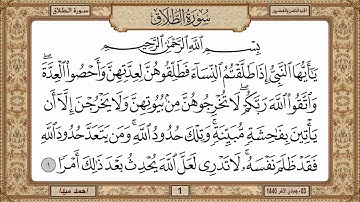 سورة الطلاق
سُورَةُ الطَّلَاقِ
بِسْمِ اللَّهِ الرَّحْمَٰنِ الرَّحِيمِ
يَٰٓأَيُّهَا النَّبِيُّ إِذَا طَلَّقْتُمُ النِّسَآءَ فَطَلِّقُوهُنَّ لِعِدَّتِهِنَّ وَأَحْصُوا الْعِدَّةَ ۖ
وَاتَّقُوا اللَّهَ رَبَّكُمْ ۖ لَا تُخْرِجُوهُنَّ مِنْ بُيُوتِهِنَّ وَلَا يَخْرُجْنَ إِلَّآ أَنْ
يَأْتِينَ بِفَٰحِشَةٍ مُّبَيِّنَةٍ ۚ وَتِلْكَ حُدُودُ اللَّهِ ۚ وَمَنْ يَتَعَدَّ حُدُودَ اللَّهِ
فَقَدْ ظَلَمَ نَفْسَهُ ۚ لَا تَدْرِي لَعَلَّ اللَّهَ يُحْدِثُ بَعْدَ ذَٰلِكَ أَمْرًا ١
1